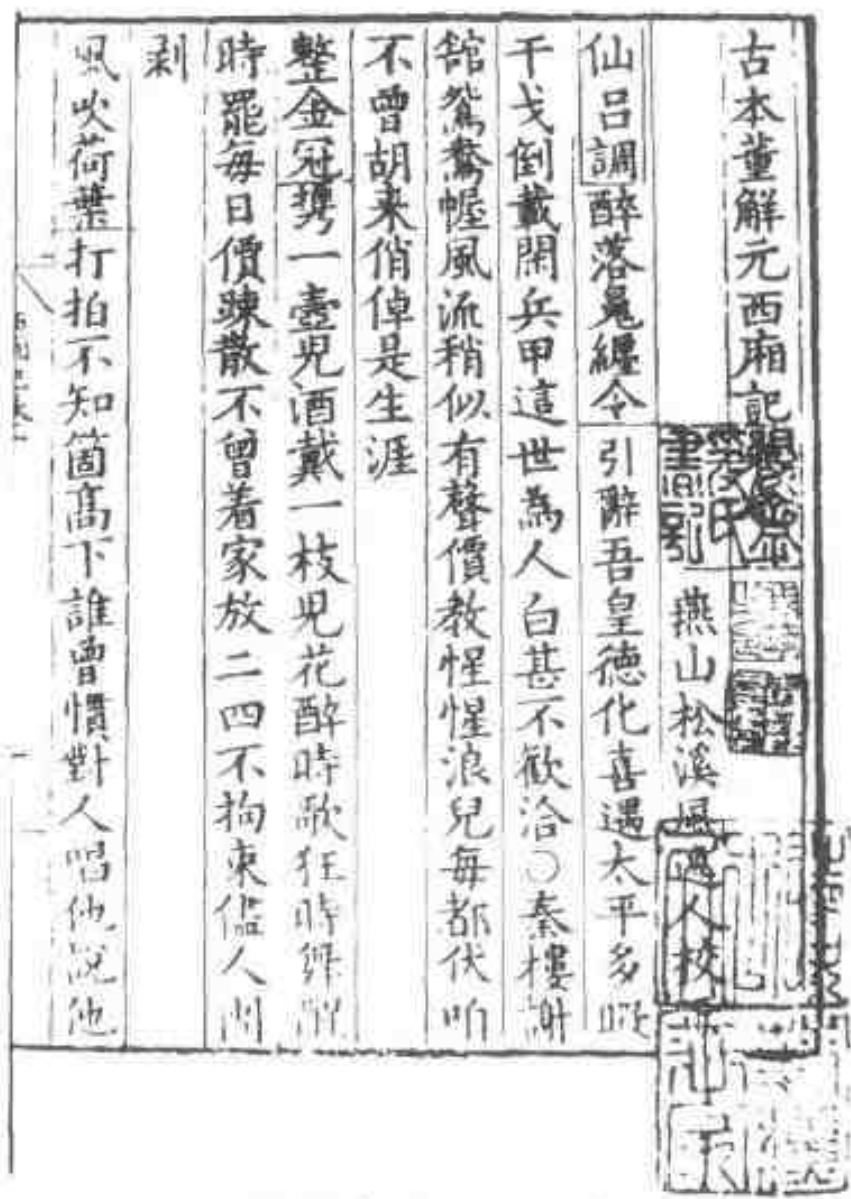 古本董解元西廂記
燕山松溪風逸人校
仙呂調醉落魄纏令 引辭吾皇德化喜遇太平多暇
干戈倒載閑兵甲這世為人白甚不歡洽○秦樓謝
館鴛鴦幄風流稍似有聲價教惺惺浪兒每都伏咱
不曾胡來俏倬是生涯
整金冠攜一壺兒酒戴一枝兒花醉時歌狂時舞醒
時罷每日價疎散不曾着家放二四不拘束儘人團
剥
風吹荷葉打拍不知箇高下誰曾慣對人唱他說他